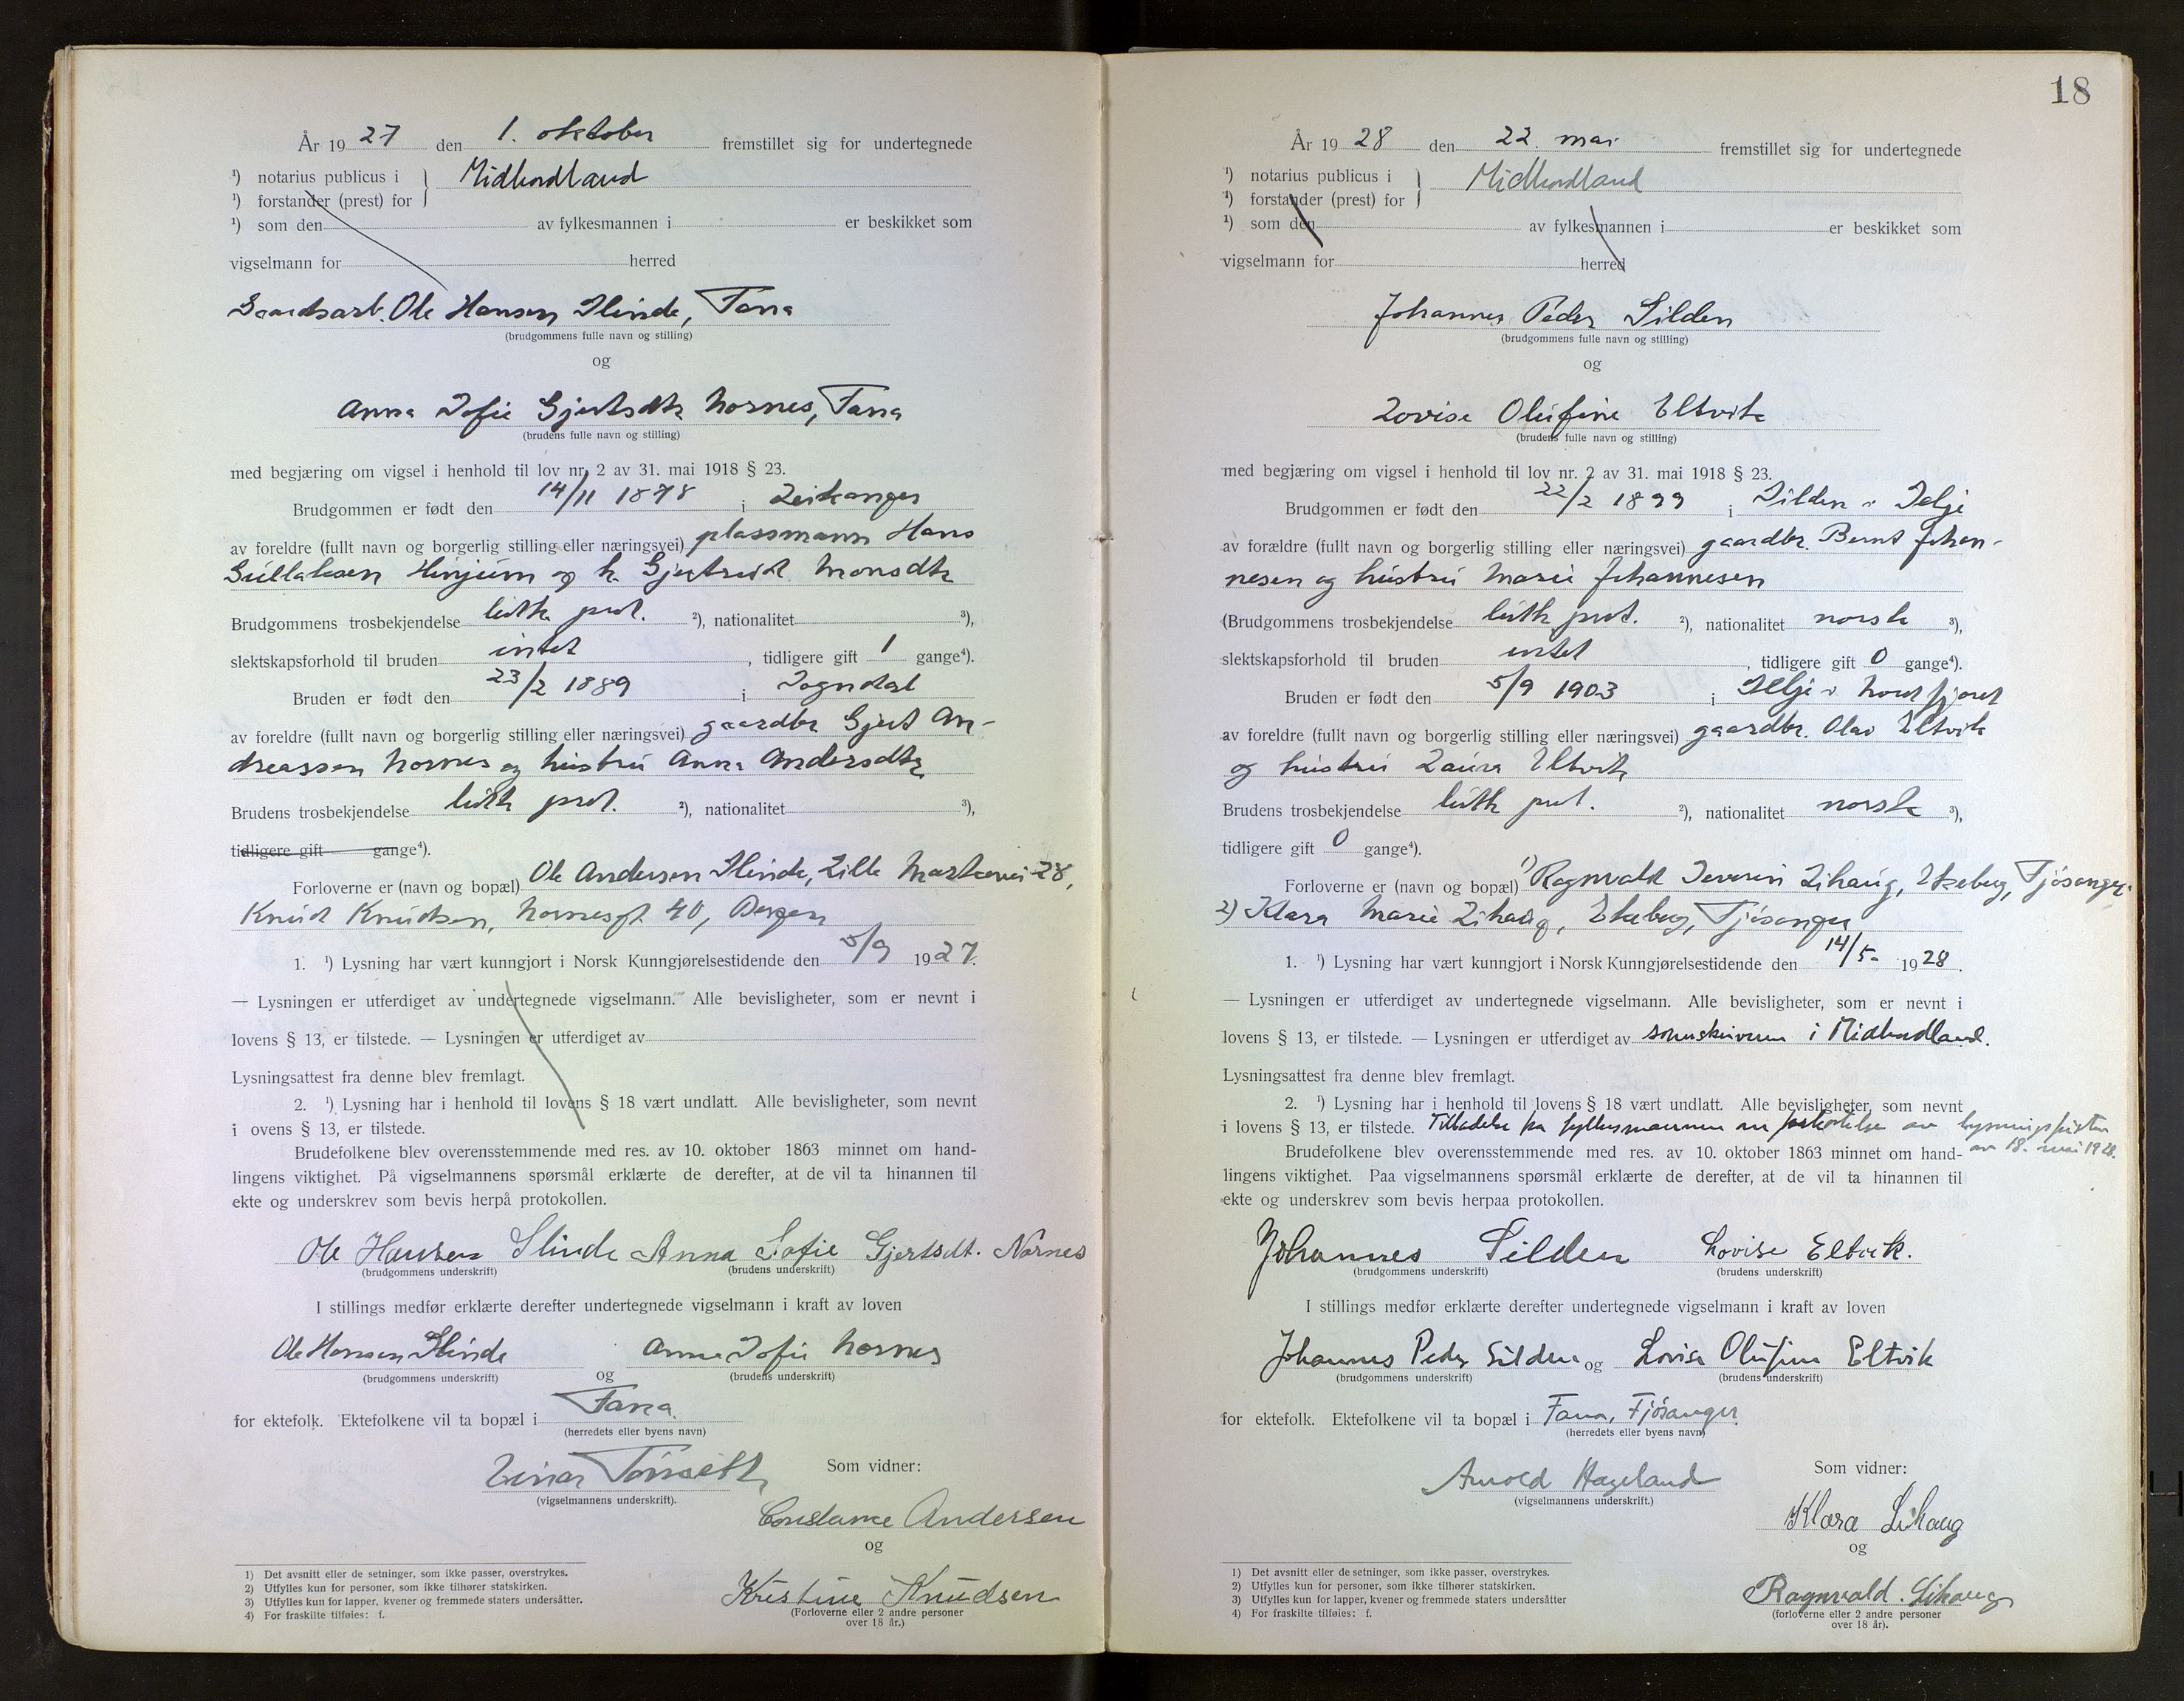 År 19 27 den 1. oktober fremstillet sig for undertegnede
¹) notarius publicus i } Midhordland
¹) forstander (prest) for
¹) som den av fylkesmannen i er beskikket som
vigselmann for herred
Gaardsarb. Ole Hansen Slinde, Fana
(brudgommens fulle navn og stilling)
og
Anna Sofie Gjertsdtr Nornes, Fana
(brudens fulle navn og stilling)
med begjæring om vigsel i henhold til lov nr. 2 av 31. mai 1918 § 23.
Brudgommen er født den 14/11 1878 i Leikanger
av foreldre (fullt navn og borgerlig stilling eller næringsvei) plassmann Hans
Gullaksen Hinjum og h. Gjertrud Monsdtr
Brudgommens trosbekjendelse luth. prot. ²), nationalitet ³),
slektskapsforhold til bruden intet, tidligere gift 1 gange⁴).
Bruden er født den 23/2 1889 i Sogndal
av foreldre (fullt navn og borgerlig stilling eller næringsvei) gaardbr Gjert An-
dreassen Nornes og hustru Anna Andersdtr
Brudens trosbekjendelse luth prot. ²), nationalitet ³),
tidligere gift gange⁴).
Forloverne er (navn og bopæl) Ole Andersen Slinde, Lille Markevei 28,
Knud Knudsen, Nornesgt. 40, Bergen
1. ¹) Lysning har vært kunngjort i Norsk Kunngjørelsestidende den 5/9 1927.
— Lysningen er utferdiget av undertegnede vigselmann. Alle bevisligheter, som er nevnt i
lovens § 13, er tilstede. — Lysningen er utferdiget av
Lysningsattest fra denne blev fremlagt.
2. ¹) Lysning har i henhold til lovens § 18 vært undlatt. Alle bevisligheter, som nevnt
i ovens § 13, er tilstede.
Brudefolkene blev overensstemmende med res. av 10. oktober 1863 minnet om hand-
lingens viktighet. På vigselmannens spørsmål erklærte de derefter, at de vil ta hinannen til
ekte og underskrev som bevis herpå protokollen.
Ole Hansen Slinde Anna Sofie Gjertsdt. Nornes
(brudgommens underskrift) (brudens underskrift)
I stillings medfør erklærte derefter undertegnede vigselmann i kraft av loven
Ole Hansen Slinde og Anna Sofie Nornes
(brudgommens underskrift) (brudens underskrift)
for ektefolk. Ektefolkene vil ta bopæl i Fana.
(herredets eller byens navn)
Einar Tønseth
(vigselmannens underskrift).
Som vidner:
Constance Andersen
og
Kristine Knudsen
(Forloverne eller 2 andre personer
over 18 år.)
1) Det avsnitt eller de setninger, som ikke passer, overstrykes.
2) Utfylles kun for personer, som ikke tilhører statskirken.
3) Utfylles kun for lapper, kvener og fremmede staters undersåtter.
4) For fraskilte tilføies: f.
18
År 19 28 den 22. mai fremstillet sig for undertegnede
¹) notarius publicus i } Midhordland
¹) forstander (prest) for
¹) som den av fylkesmannen i er beskikket som
vigselmann for herred
Johannes Peder Silden
(brudgommens fulle navn og stilling)
og
Lovise Olufine Eltvik
(brudens fulle navn og stilling)
med begjæring om vigsel i henhold til lov nr. 2 av 31. mai 1918 § 23.
Brudgommen er født den 22/2 1899 i Silden i Selje
av forældre (fullt navn og borgerlig stilling eller næringsvei) gaardbr. Bernt Johan-
nesen og hustru Marie Johannesen
(Brudgommens trosbekjendelse luth prot. ²), nationalitet norsk ³),
slektskapsforhold til bruden intet, tidligere gift 0 gange⁴).
Bruden er født den 5/9 1903 i Selje i Nordfjord
av foreldre (fullt navn og borgerlig stilling eller næringsvei) gaardbr. Olav Eltvik
og hustru Laura Eltvik
Brudens trosbekjendelse luth prot. ²), nationalitet norsk ³),
tidligere gift 0 gange⁴).
Forloverne er (navn og bopæl) 1) Ragnvald Severin Lihaug, Ekeberg, Fjøsanger.
2) Klara Marie Lihaug, Ekeberg, Fjøsanger
1. ¹) Lysning har vært kunngjort i Norsk Kunngjørelsestidende den 14/5- 1928.
— Lysningen er utferdiget av undertegnede vigselmann. Alle bevisligheter, som er nevnt i
lovens § 13, er tilstede. — Lysningen er utferdiget av sorenskriveren i Midhordland.
Lysningsattest fra denne blev fremlagt.
2. ¹) Lysning har i henhold til lovens § 18 vært undlatt. Alle bevisligheter, som nevnt
i lovens § 13, er tilstede. Tilladelse fra fylkesmannen om forkortelse av lysningsfristen
av 18. mai 1928.
Brudefolkene blev overensstemmende med res. av 10. oktober 1863 minnet om hand-
lingens viktighet. Paa vigselmannens spørsmål erklærte de derefter, at de vil ta hinannen til
ekte og underskrev som bevis herpaa protokollen.
Johannes Silden Lovise Eltvik.
(brudgommens underskrift) (brudens underskrift)
I stillings medfør erklærte derefter undertegnede vigselmann i kraft av loven
Johannes Peder Silden og Lovise Olufine Eltvik
(brudgommens underskrift) (brudens underskrift)
for ektefolk. Ektefolkene vil ta bopæl i Fana, Fjøsanger.
(herredets eller byens navn)
Arnold Hazeland
(vigselmannens underskrift.)
Som vidner:
Klara Lihaug
og
Ragnvald. Lihaug
(forloverne eller 2 andre personer
over 18 år).
1) Det avsnitt eller de setninger, som ikke passer, overstrykes.
2) Utfylles kun for personer, som ikke tilhører statskirken.
3) Utfylles kun for lapper, kvener og fremmede staters undersåtter
4) For fraskilte tilføies: f.